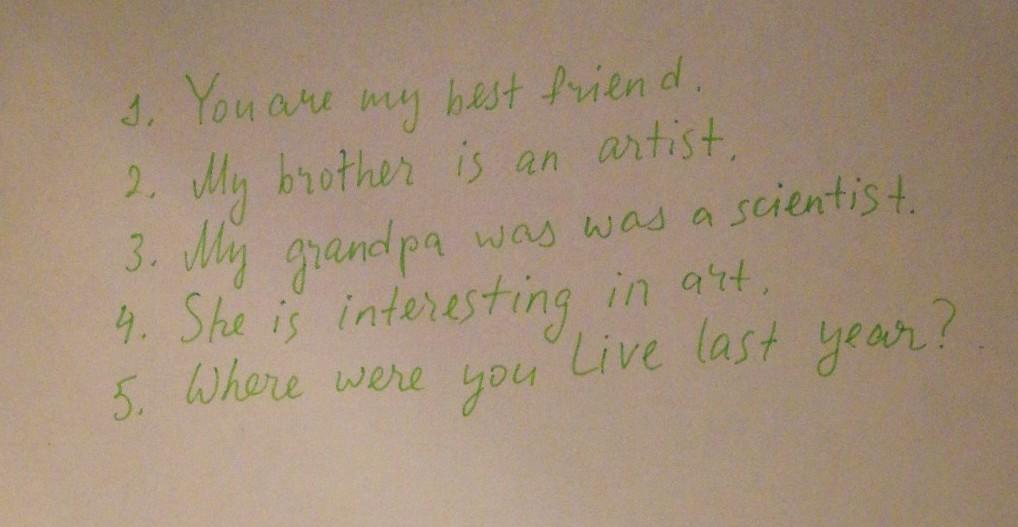 1. You are my best friend.
2. My brother is an artist.
3. My grandpa was was a scientist.
4. She is interesting in art.
5. Where were you Live last year?